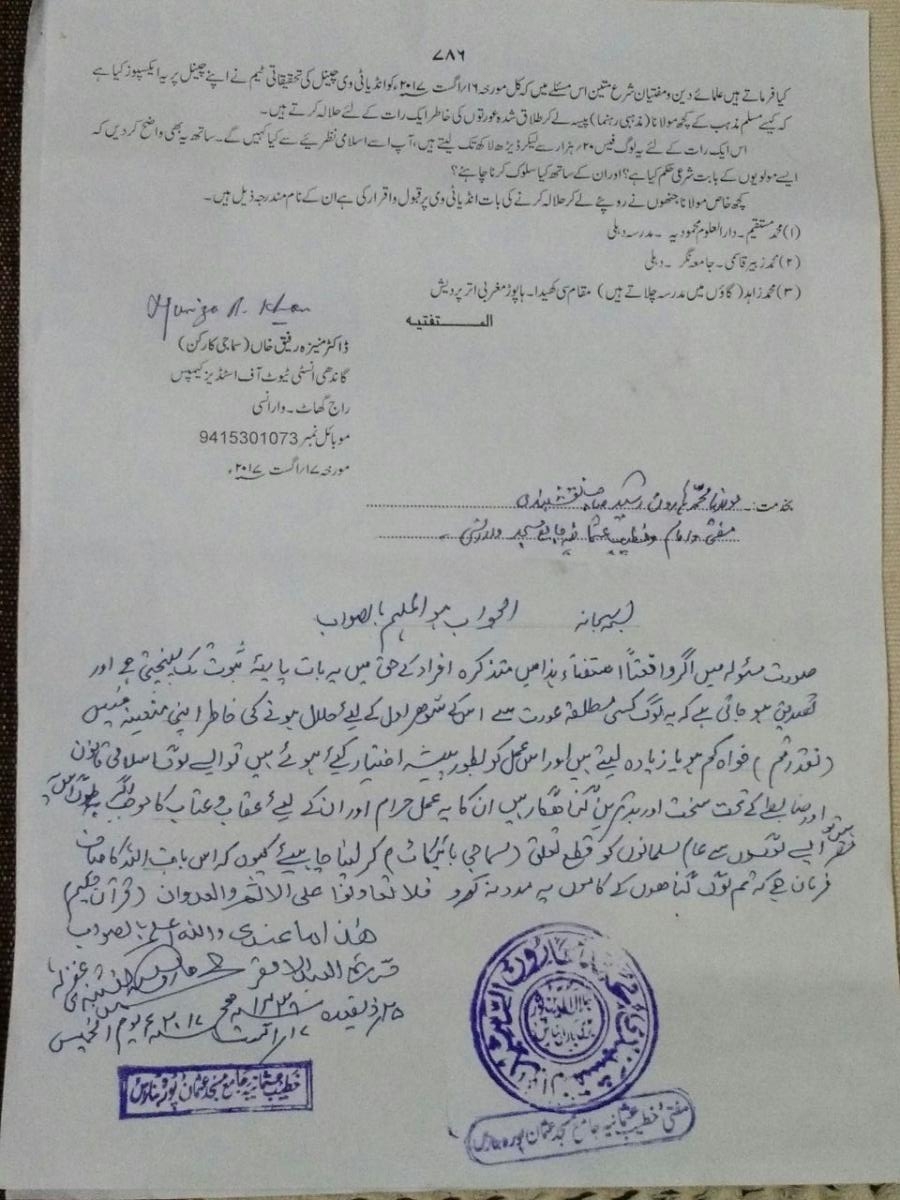 ۷۸۶
کیا فرماتے ہیں علمائے دین و مفتیان شرع متین اس مسئلے میں کہ کل مورخہ ۱۶/اگست ۲۰۱۷ء کو انڈیا ٹی وی چینل کی تحقیقاتی ٹیم نے اپنے چینل پر یہ ایکسپوز کیا ہے
کہ کیسے مسلم مذہب کے کچھ مولانا (مذہبی رہنما) پیسہ لے کر طلاق شدہ عورتوں کی خاطر ایک رات کے لئے حلالہ کرتے ہیں۔
اس ایک رات کے لئے یہ لوگ فیس ۲۰/ہزار سے لیکر ڈیڑھ لاکھ تک لیتے ہیں، آپ اسے اسلامی نظریئے سے کیا کہیں گے۔ ساتھ یہ بھی واضح کر دیں کہ
ایسے مولویوں کے بابت شرعی حکم کیا ہے؟ اور ان کے ساتھ کیا سلوک کرنا چاہئے؟
کچھ خاص مولانا جنھوں نے روپئے لے کر حلالہ کرنے کی بات انڈیا ٹی وی پر قبول و اقرار کی ہے ان کے نام مندرجہ ذیل ہیں۔
(۱) محمد مستقیم۔ دارالعلوم محمودیہ ۔ مدرسہ دہلی
(۲) محمد زبیر قاسمی۔ جامعہ نگر ۔ دہلی
(۳) محمد زاہد (گاؤں میں مدرسہ چلاتے ہیں) مقام سی کھیدا۔ ہاپوڑ مغربی اتر پردیش
المستفتیہ
Muniza R. Khan
ڈاکٹر منیزہ رفیق خاں (سماجی کارکن)
گاندھی انسٹی ٹیوٹ آف اسٹڈیز کیمپس
راج گھاٹ۔ وارانسی
موبائل نمبر 9415301073
مورخہ ۱۷/اگست ۲۰۱۷ء
بخدمت: مولانا محمد ہارون رشید صاحب نقشبندی
مفتی و امام و خطیب عثمانیہ جامع مسجد وارانسی۔
بسم سبحانہ الجواب ہو الملہم بالصواب
صورت مسئولہ میں اگر واقعتاً استفتاء ہذا میں متذکرہ افراد کے حق میں یہ بات پایۂ ثبوت تک پہنچتی ہے اور
تصدیق ہو جاتی ہے کہ یہ لوگ کسی مطلقہ عورت سے اس کے شوہر اول کے لیے حلال ہونے کی خاطر اپنی متعینہ فیس
(نقد رقم) خواہ کم ہو یا زیادہ لیتے ہیں اور اس عمل کو بطور پیشہ اختیار کیے ہوئے ہیں تو ایسے لوگ اسلامی قانون
اور ضابطے کے تحت سخت اور بدترین گناہگار ہیں ان کا یہ عمل حرام اور ان کے لیے عقاب و عتاب کا موجب ہے
ایسے لوگوں سے عام مسلمانوں کو قطع تعلق (سماجی بائیکاٹ) کر لینا چاہیے کیوں کہ اس بابت اللہ کا صاف
فرمان ہے کہ تم لوگ گناھوں کے کاموں پہ مدد نہ کرو ولا تعاونوا علی الاثم والعدوان (قرآن حکیم)
ھذا ما عندی واللہ اعلم بالصواب
محمد ہارون رشید نقشبندی غفرلہ
۲۵ ذیقعدہ ۱۴۳۸ھ
۱۷/اگست ۲۰۱۷ء یوم الخمیس
خطیب عثمانیہ جامع مسجد عثمان پورہ بنارس
مفتی و خطیب عثمانیہ جامع مسجد عثمان پورہ بنارس